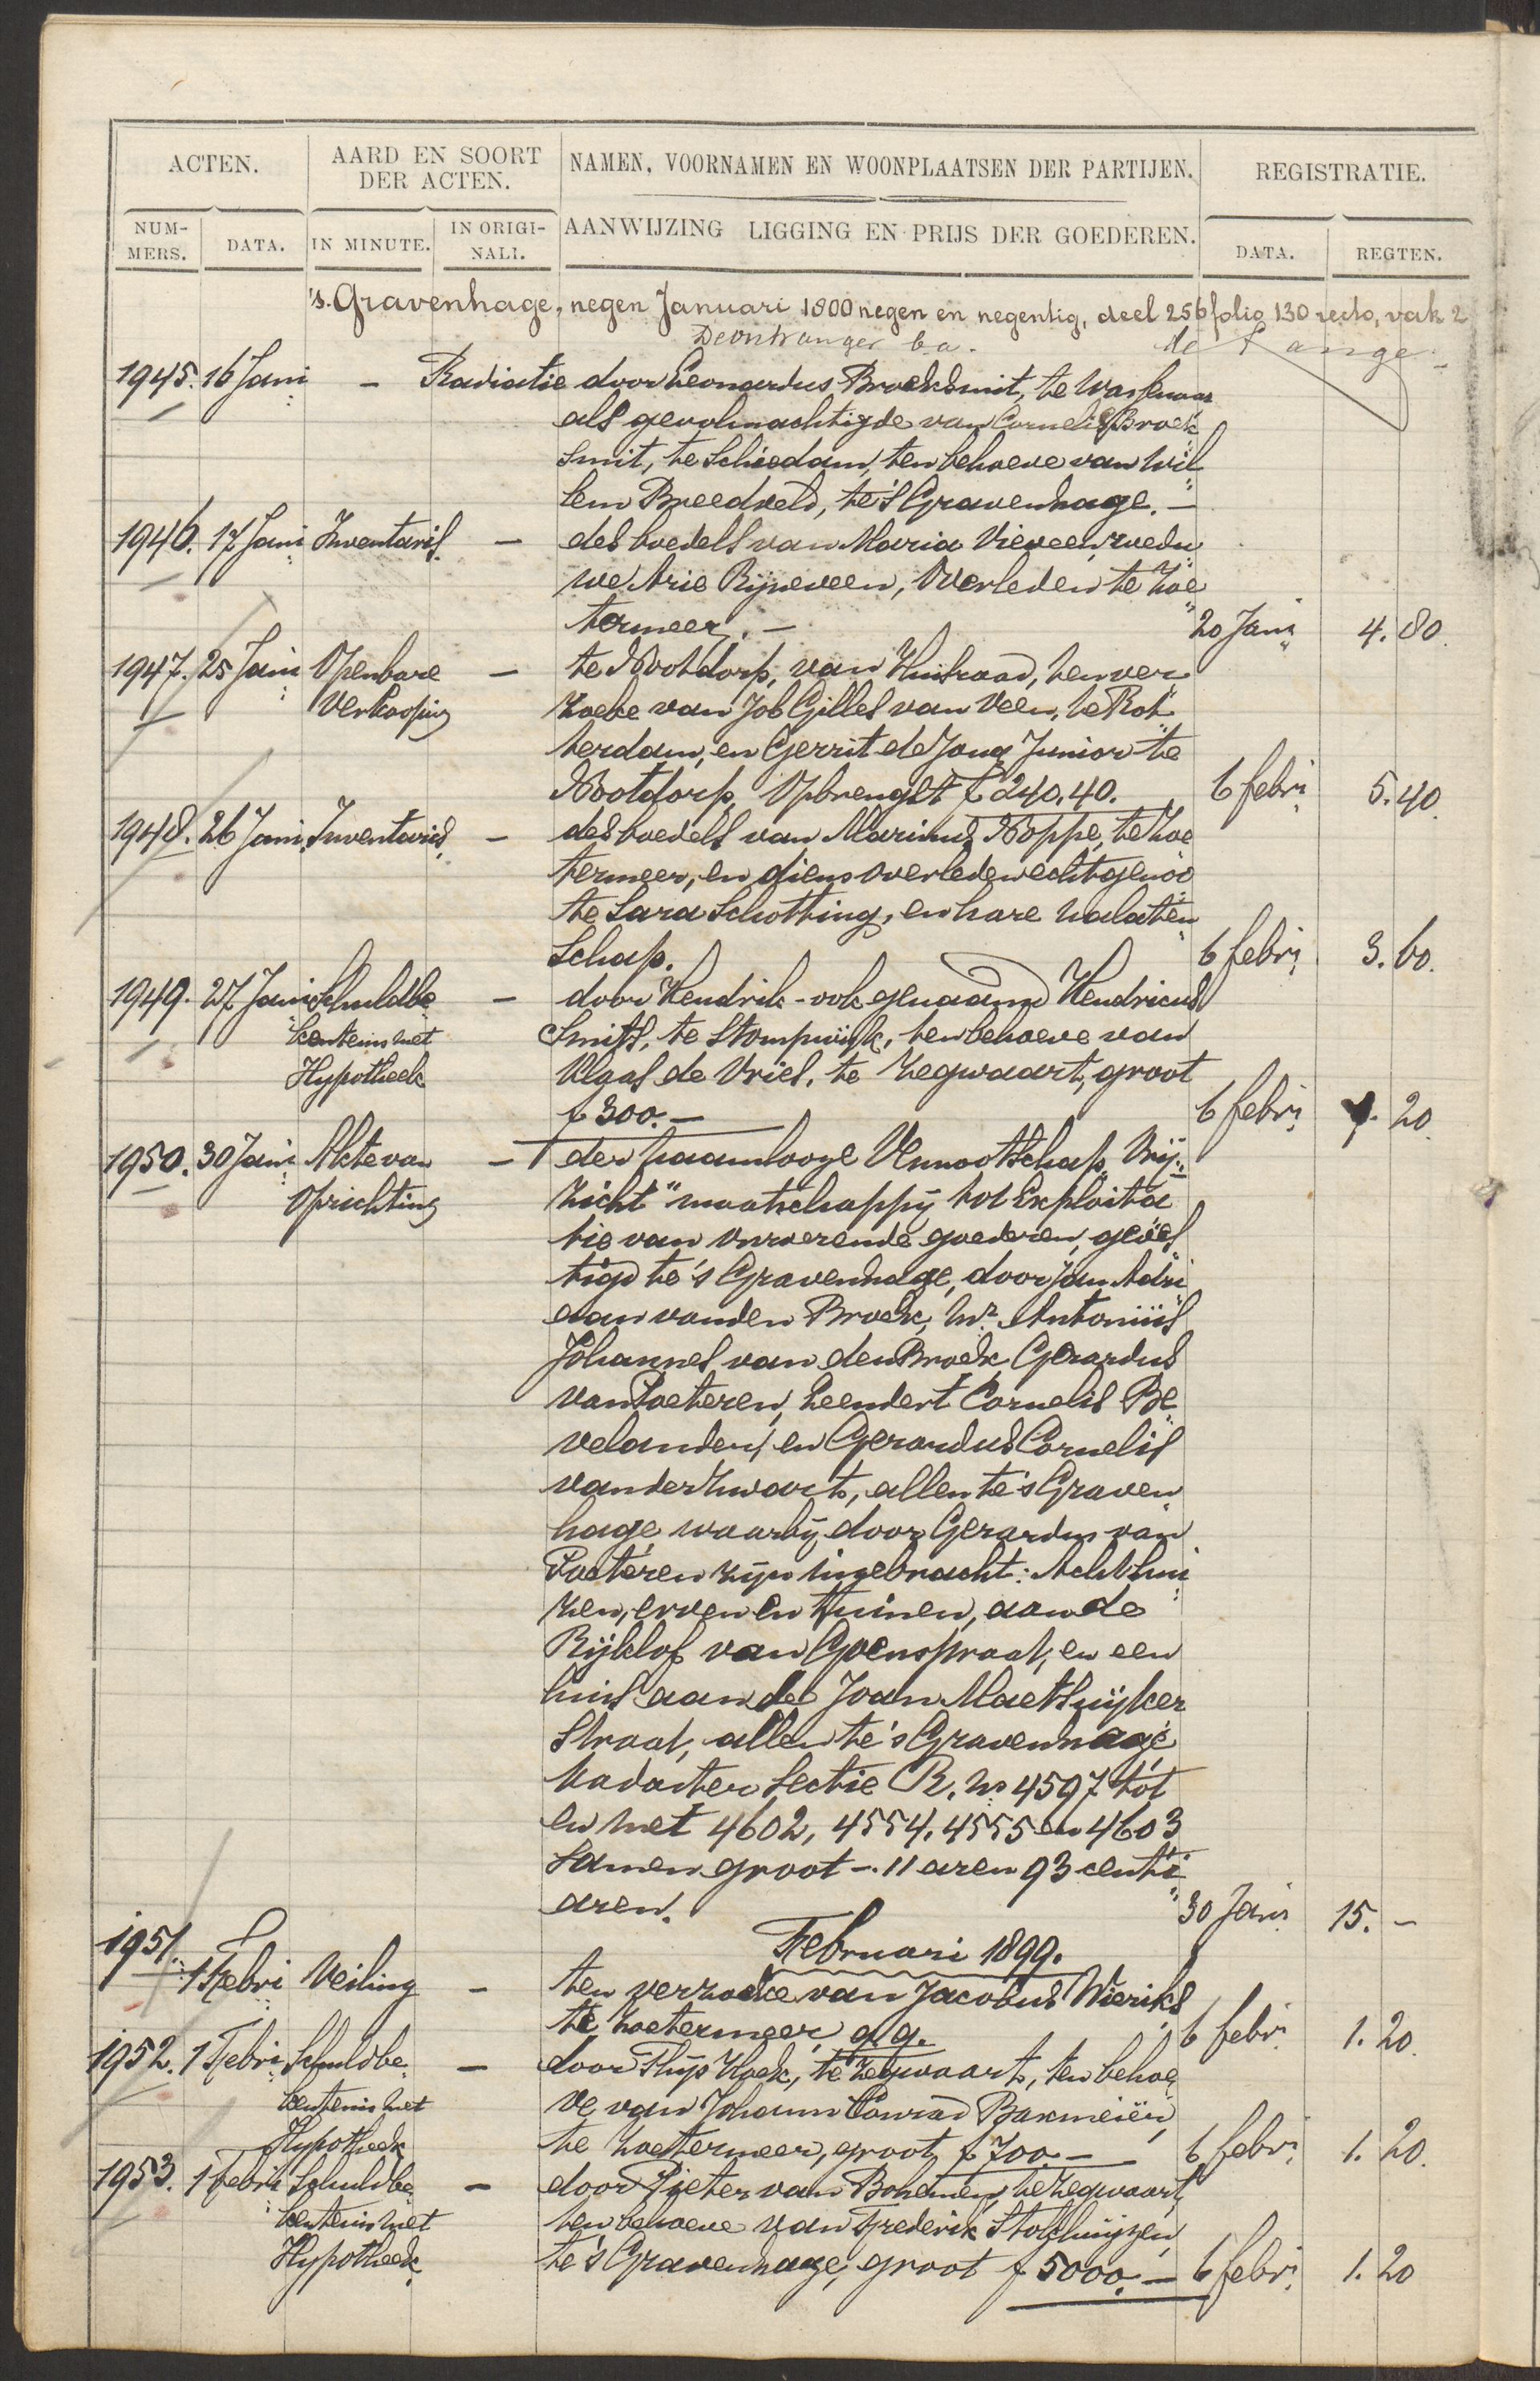 ACTEN. AARD EN SOORT DER ACTEN. NAMEN, VOORNAMEN EN WOONPLAATSEN DER PARTIJEN. REGISTRATIE.
NUM-MERS. DATA. IN MINUTE. IN ORIGI-NALI. AANWIJZING LIGGING EN PRIJS DER GOEDEREN. DATA. REGTEN.
's.Gravenhage, negen Januari 1800 negen en negentig, deel 256 folio 130 recto, vak 2
De ontvanger b.a. de Lange
1945. 16 Jani — Radiatie door Leonardus Broeksmit, te Wassenaar
als gevolmachtigde van Cornelis Broek
smit, te Schiedam, ten behoeve van Wil
lem Breedveld, te 's Gravenhage. —
1946. 17 Jani Inventaris — des boedels van Maria Vieveen, wedu
we Arie Rijneveen, overleden te Zoe
termeer. — 20 Jani 4. 80.
1947. 25 Jani Openbare — te Nootdorp, van Huisraad, ten ver
Verkooping zoeke van Job Gilles van Veen, te Rot
terdam, en Gerrit de Jong Junior te
Nootdorp, Opbrengst f 240.40. 6 febri 5. 40.
1948. 26 Jani Inventaris — des boedels van Marinus Noppe, te Zoe
termeer, en diens overleden echtgenoo
te Sara Schotting, en hare nalaten
schap. 6 febri 3. 60.
1949. 27 Jani Schuldbe — door Hendrik - ook genaamd Hendricus
kentenis met Smits, te Stompwijk, ten behoeve van
Hypotheek Klaas de Vries, te Zegwaart, groot
f 300. — 6 febri 1. 20.
1950. 30 Jani Akte van — der Naamlooze Vennootschap „Vrij
Oprichting zicht" maatschappij tot Exploita
tie van onroerende goederen, geves
tigd te 's Gravenhage, door Jan Adri
aan van den Broek, Mr. Antonius
Johannes van den Broek, Gerardus
van Poeteren, Leendert Cornelis Be
velander, en Gerardus Cornelis
van der Zwart, allen te 's Graven
hage, waarbij door Gerardus van
Poeteren zijn ingebracht: Acht hui
zen, erven en tuinen, aan de
Rijklof van Goensstraat, en een
huis aan de Joan Maetsuijker
straat, allen te 's Gravenhage
Kadaster Sectie R. Nos 4597 tot
en met 4602, 4554, 4555 en 4603
samen groot -. 11 aren 93 centi
aren. 30 Jani 15. -
Februari 1899.
1951. 1 Febri Veiling — ten verzoeke van Jacobus Wieriks
te Zoetermeer, q.q. 6 febri 1. 20.
1952. 1 Febri Schuldbe — door Thijs Hoek, te Zegwaart, ten behoe
kentenis met ve van Johann Conrad Bakmeier,
Hypotheek te Zoetermeer, groot f 700. — 6 febri 1. 20.
1953. 1 Febri Schuldbe — door Pieter van Bohemen, te Zegwaart,
kentenis met ten behoeve van Frederik Stolkhuijzen,
Hypotheek te 's Gravenhage, groot f 5000. — 6 febri 1. 20